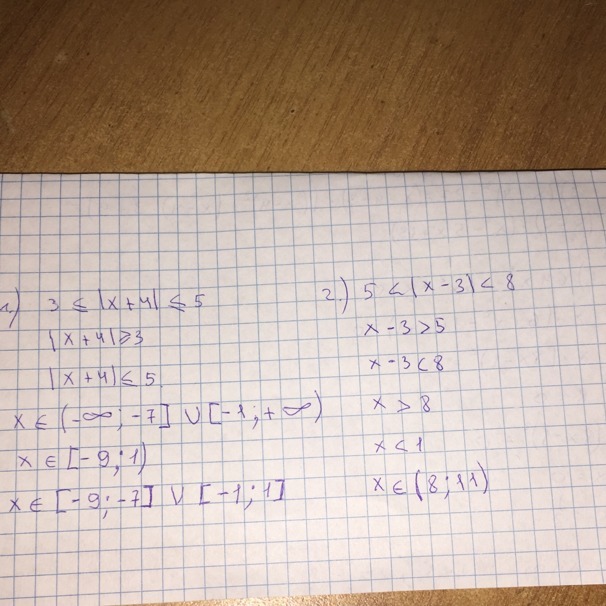 1.) 3 ≤ |x+4| ≤ 5
|x+4| ≥ 3
|x+4| ≤ 5
x ∈ (-∞; -7] ∪ [-1; +∞)
x ∈ [-9; 1)
x ∈ [-9; -7] ∪ [-1; 1]
2.) 5 < |x-3| < 8
x-3 > 5
x-3 < 8
x > 8
x < 1
x ∈ (8; 11)